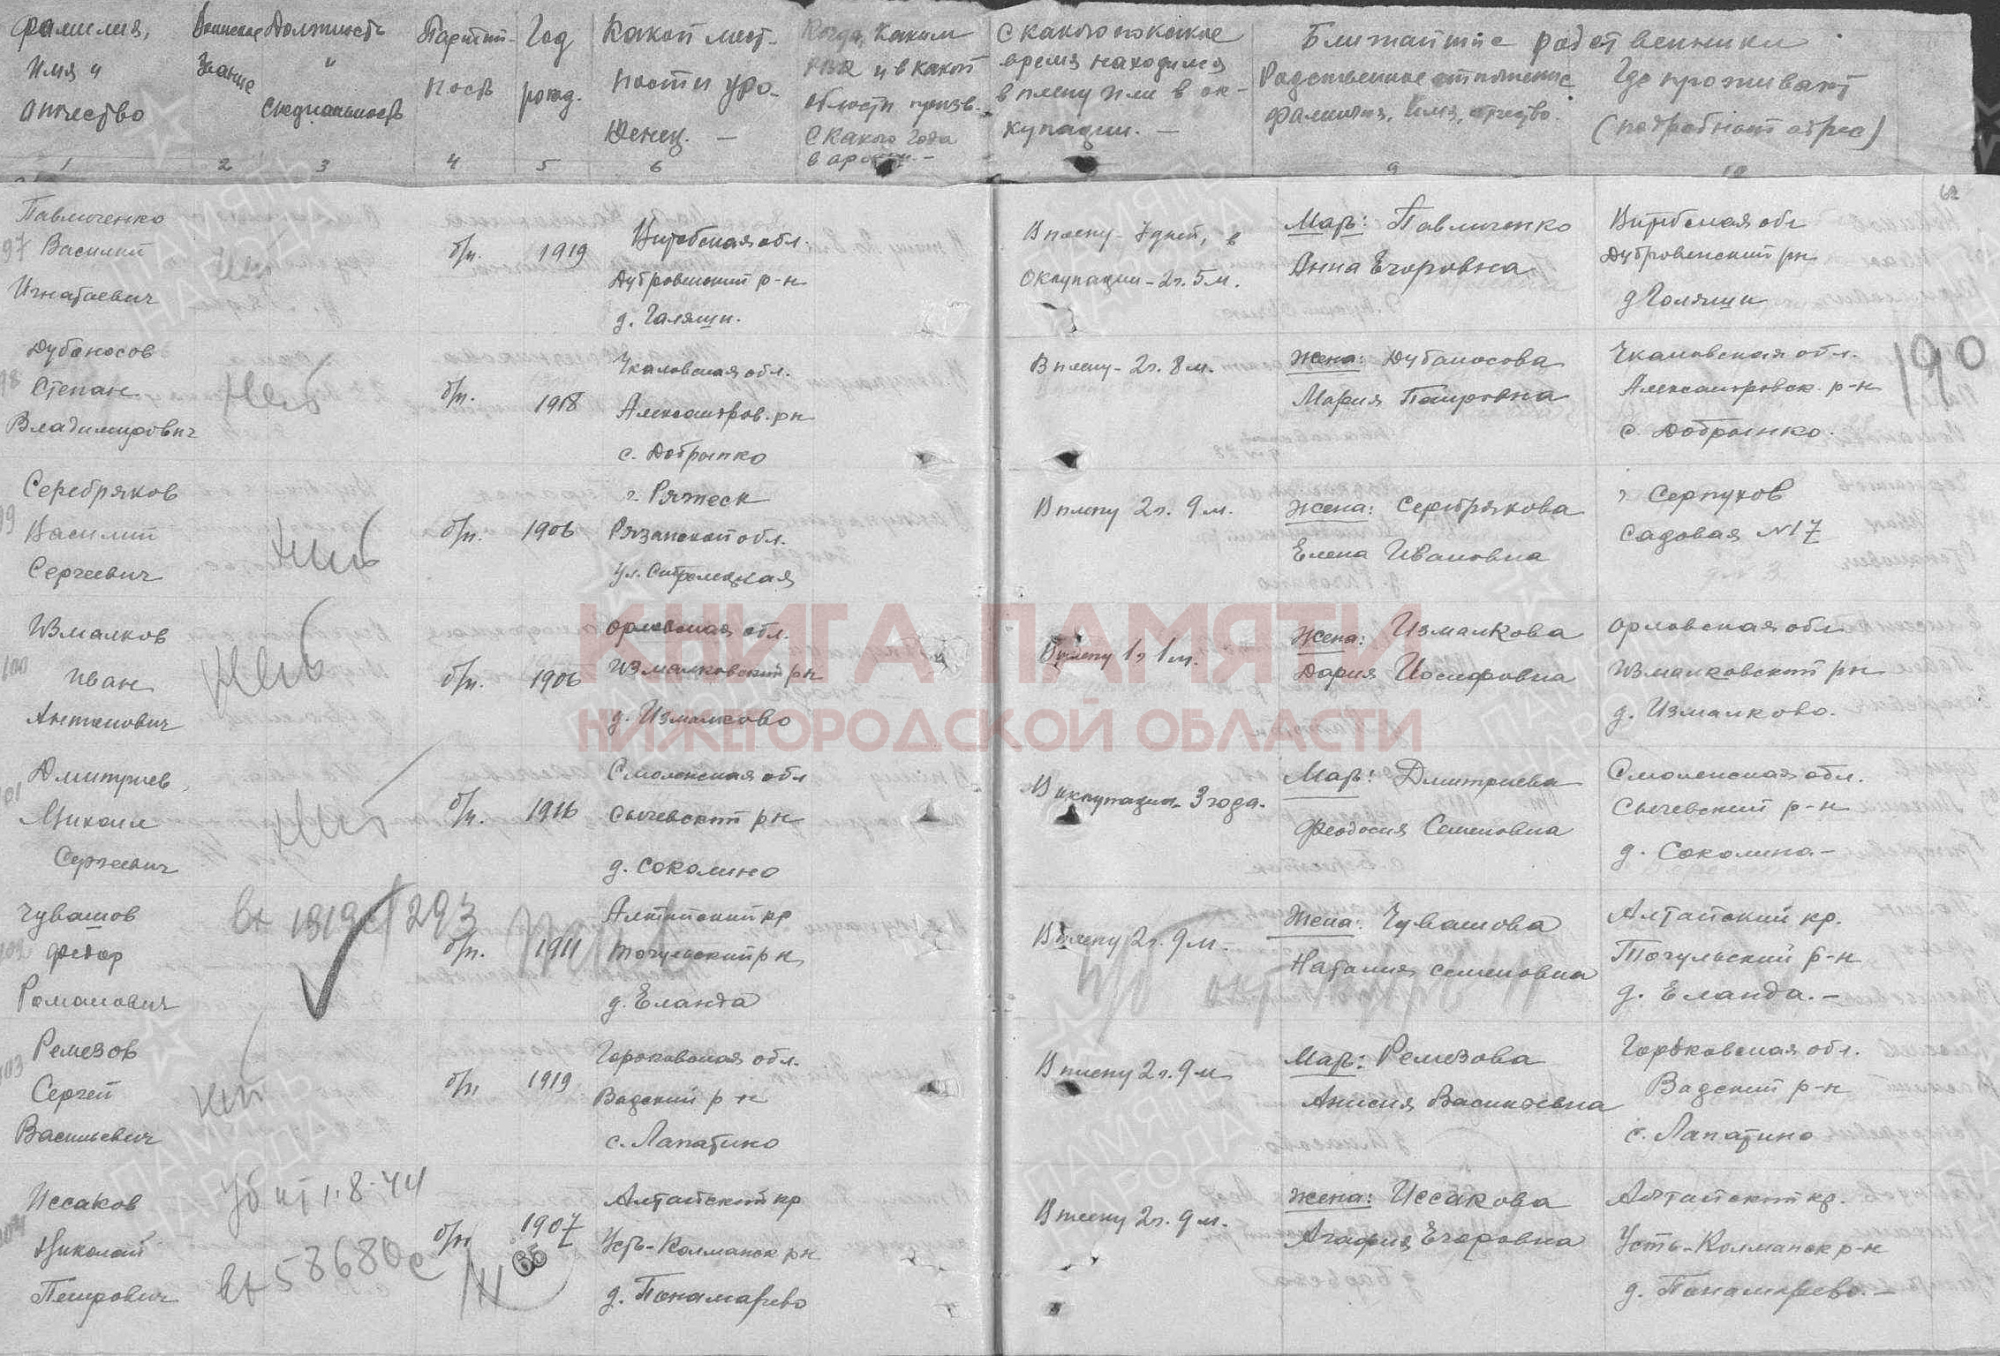 Фамилия, Воинское Должность Партий- Год Какой мест- Когда, каким С какого по какое Ближайшие родственники
имя и звание и ность рожд. ности уро- РВК и в какой время находился Родственное отношение Где проживают
отчество специальность женец. — области призв. в плену или в ок- фамилия, имя, отчество. (подробный адрес)
С какого года купации. —
в армии. —
1 2 3 4 5 6 9 10
62
97
Павлюченко
Василий
Игнатьевич
нет
б/п. 1919
Витебская обл.
Дубровенский р-н
д. Галяши.
В плену - 7 дней, в
оккупации - 2г. 5м.
Мать: Павлюченко
Анна Егоровна
Витебская обл
Дубровенский рн
д Голяши
98
Дубоносов
Степан
Владимирович
нет
б/п. 1918
Чкаловская обл.
Александров. рн
с. Добрынко
В плену - 2г. 8м.
Жена: Дубоносова
Мария Петровна
Чкаловская обл.
Александровск. р-н
с. Добрынко.
190
99
Серебряков
Василий
Сергеевич
нет
б/п. 1906
г. Ряжск
Рязанской обл.
ул. Стрелецкая
В плену 2г. 9м.
Жена: Серебрякова
Елена Ивановна
г Серпухов
Садовая №17
100
Измалков
Иван
Антонович
нет
б/п. 1906
Орловская обл.
Измалковский рн
д. Измалково
В плену 1г 1м.
Жена: Измалкова
Дария Иосифовна
Орловская обл
Измалковский рн
д. Измалково.
101
Дмитриев
Михаил
Сергеевич
нет
б/п. 1916
Смоленская обл
Сычевский рн
д. Соколино
В оккупации 3 года.
Мать: Дмитриева
Феодосия Семеновна
Смоленская обл.
Сычевский р-н
д. Соколино. —
102
Чувашов
Федор
Романович
вх 1319с/293
б/п. 1911
Алтайский кр
Тогульский рн
д. Еланда
В плену 2г. 9м.
Жена: Чувашова
Наталия Семеновна
Алтайский кр.
Тогульский р-н
д. Еланда. —
103
Ремезов
Сергей
Васильевич
нет
б/п 1919
Горьковская обл.
Вадский р-н
с. Лапатино
В плену 2г. 9м
Мать: Ремезова
Анисия Васильевна
Горьковская обл.
Вадский р-н
с. Лапатино
104
Иссаков
Николай
Петрович
Убит 1.8.44
вх 58680с
б/п 1907
Алтайский кр
Усть-Калманск рн
д. Панамарево
В плену 2г. 9м.
Жена: Иссакова
Агафия Егоровна
Алтайский кр.
Усть-Калманск р-н
д. Панамарево. —
КНИГА ПАМЯТИ
НИЖЕГОРОДСКОЙ ОБЛАСТИ
ПАМЯТЬ
НАРОДА